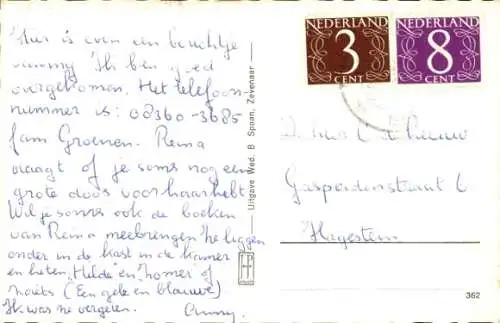 Hier is even een berichtje
van mij. Ik ben goed
overgekomen. Het telefoon-
nummer is: 08360-3685
fam Groenen. Reina
vraagt of je soms nog een
grote doos voor haar hebt
Wil je soms ook de boeken
van Reina meebrengen ze liggen
onder in de kast in de kamer
en heten "Helde" en "homer of
noiets (Een gele en blauwe)
Ik was ze vergeten.
Uitgave Wed. B Spaan, Zevenaar
NEDERLAND
3
CENT
NEDERLAND
8
CENT
Gasperdenstraat
Hagestein
362